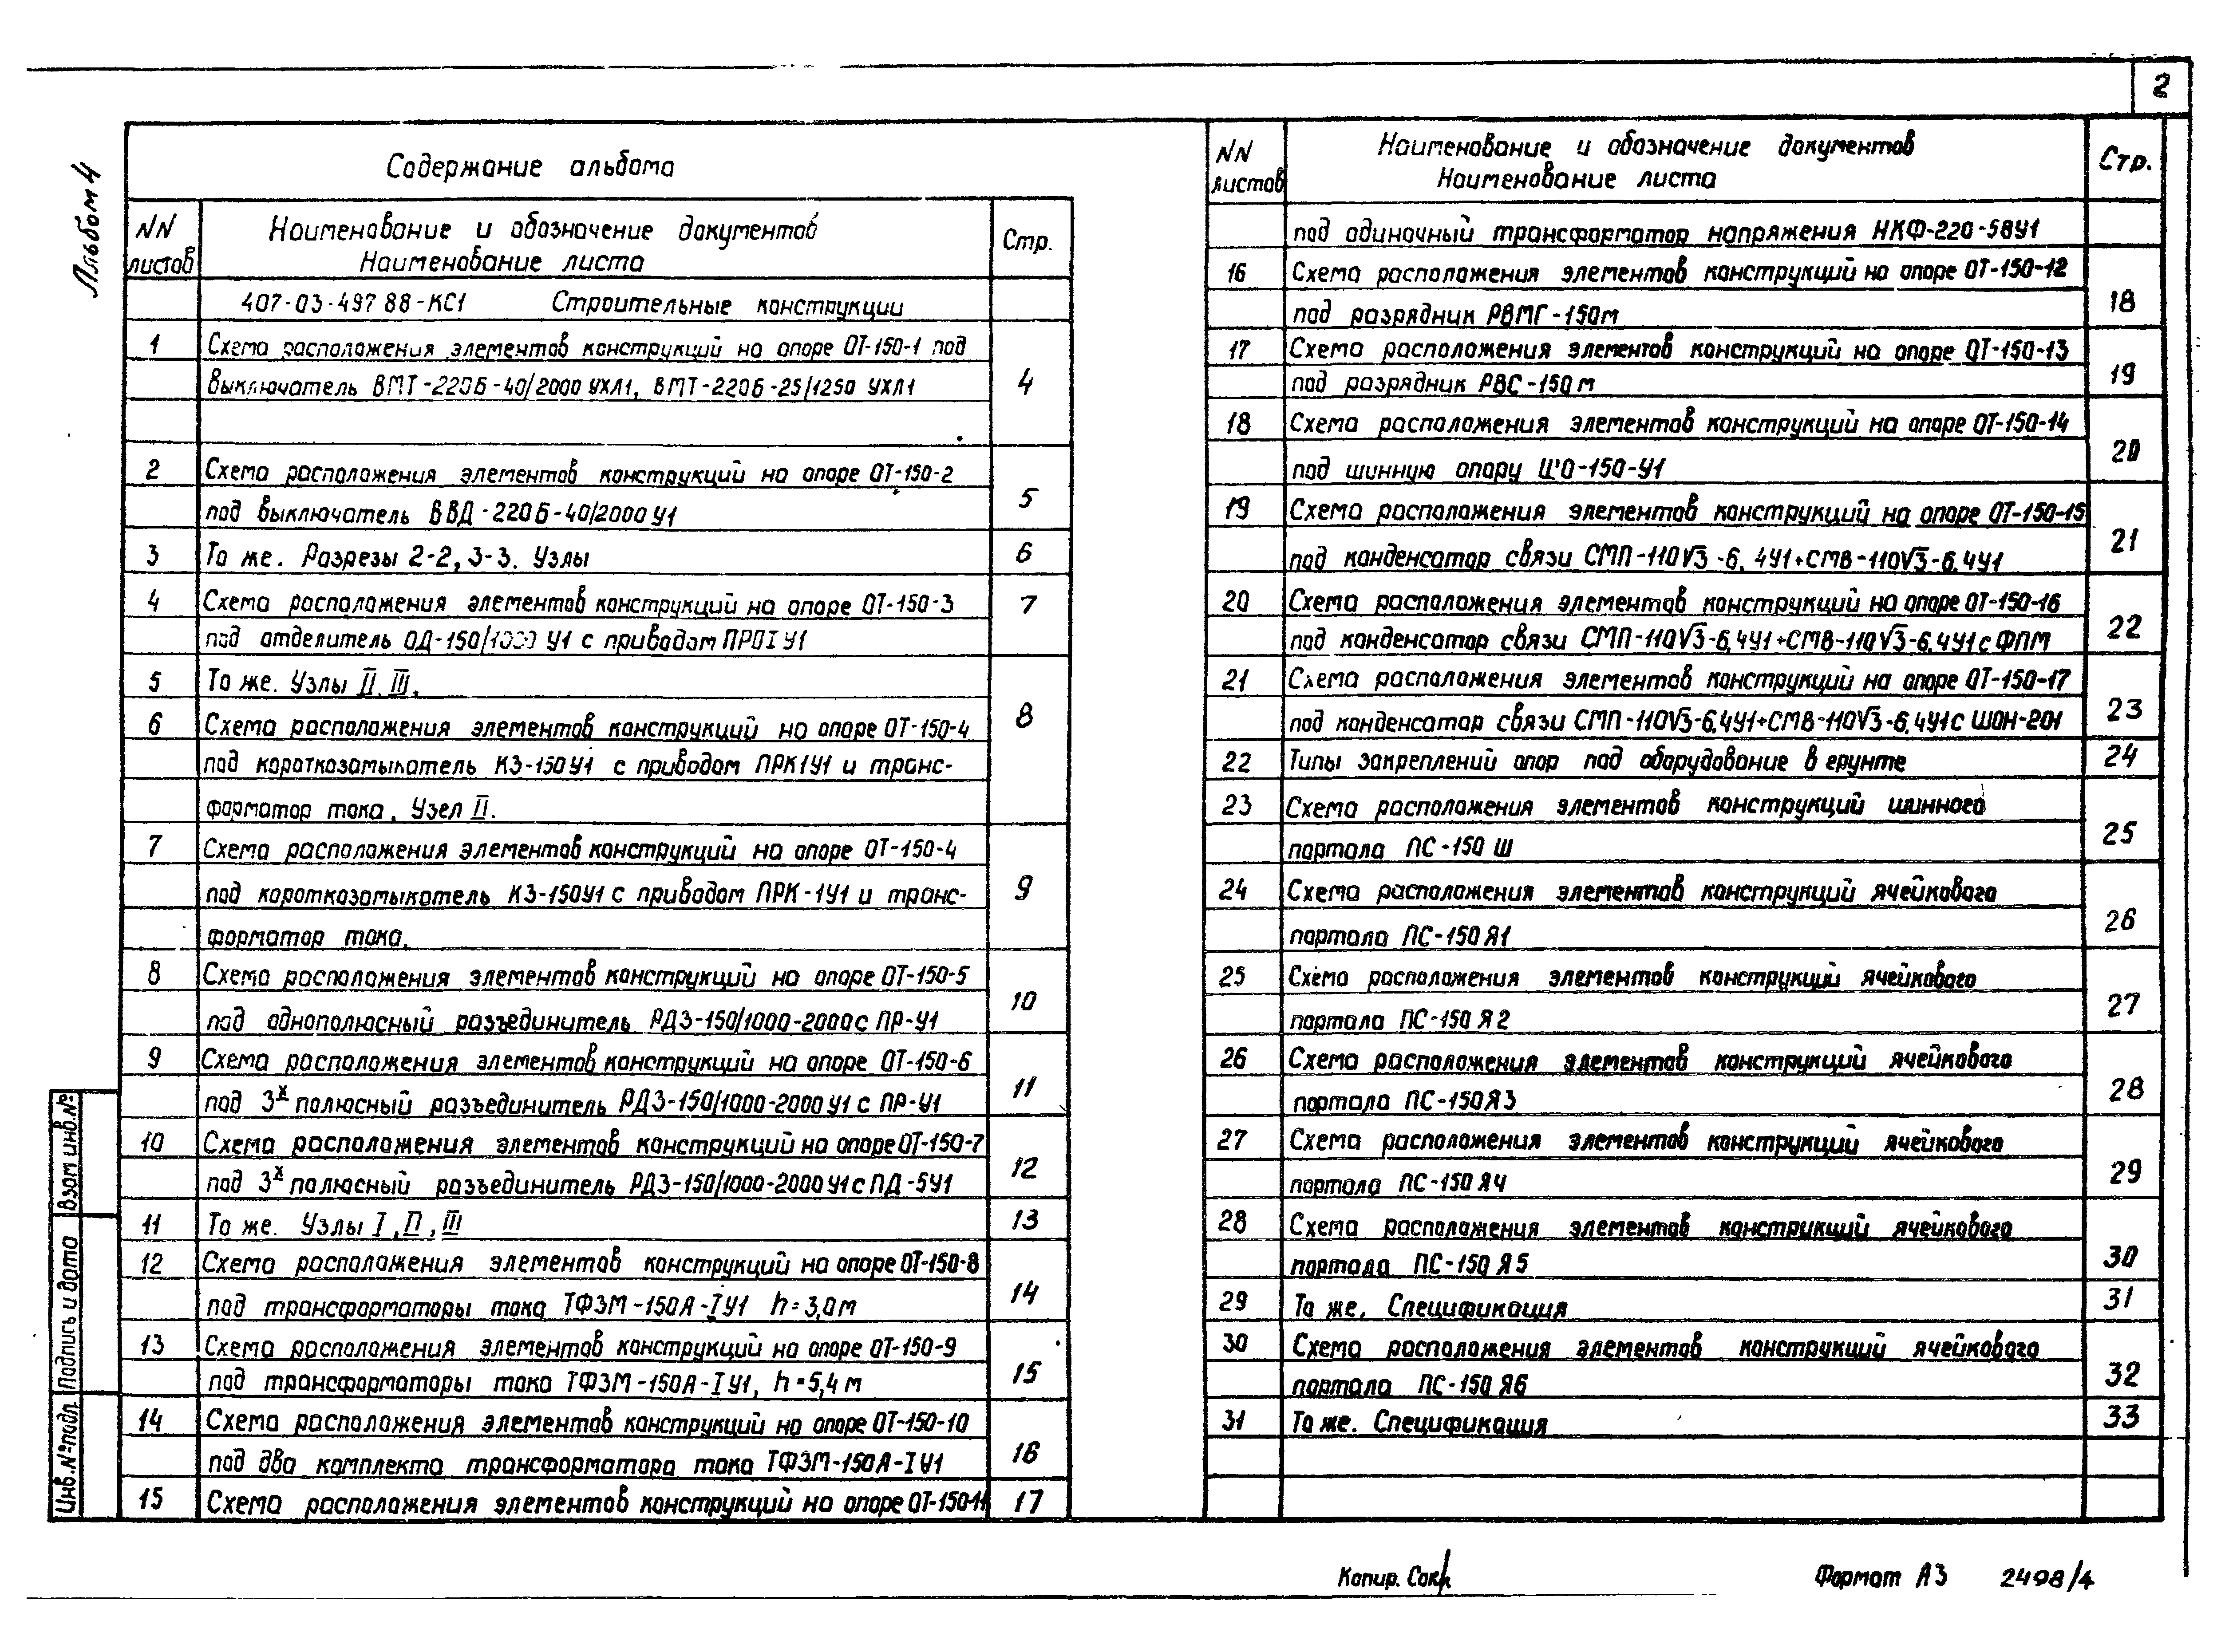 2
Альбом 4
Содержание альбома
NN листов
Наименование и обозначение документов
Наименование листа
Стр.
407-03-497 88-КС1 Строительные конструкции
1 Схема расположения элементов конструкций на опоре ОТ-150-1 под
выключатель ВМТ-220Б-40/2000 УХЛ1, ВМТ-220Б-25/1250 УХЛ1 4
2 Схема расположения элементов конструкций на опоре ОТ-150-2
под выключатель ВВД-220Б-40/2000 У1 5
3 То же. Разрезы 2-2, 3-3. Узлы 6
4 Схема расположения элементов конструкций на опоре ОТ-150-3 7
под отделитель ОД-150/1000 У1 с приводом ПРО1У1
5 То же. Узлы II, III.
6 Схема расположения элементов конструкций на опоре ОТ-150-4 8
под короткозамыкатель КЗ-150У1 с приводом ПРК1У1 и транс-
форматор тока. Узел II.
7 Схема расположения элементов конструкций на опоре ОТ-150-4
под короткозамыкатель КЗ-150У1 с приводом ПРК-1У1 и транс- 9
форматор тока.
8 Схема расположения элементов конструкций на опоре ОТ-150-5
под однополюсный разъединитель РДЗ-150/1000-2000 с ПР-У1 10
9 Схема расположения элементов конструкций на опоре ОТ-150-6
под 3х полюсный разъединитель РДЗ-150/1000-2000 У1 с ПР-У1 11
10 Схема расположения элементов конструкций на опоре ОТ-150-7
под 3х полюсный разъединитель РДЗ-150/1000-2000 У1 с ПД-5У1 12
11 То же. Узлы I, II, III 13
12 Схема расположения элементов конструкций на опоре ОТ-150-8
под трансформаторы тока ТФЗМ-150А-IУ1 h=3,0м 14
13 Схема расположения элементов конструкций на опоре ОТ-150-9
под трансформаторы тока ТФЗМ-150А-IУ1, h=5,4 м 15
14 Схема расположения элементов конструкций на опоре ОТ-150-10
под два комплекта трансформатора тока ТФЗМ-150А-IУ1 16
15 Схема расположения элементов конструкций на опоре ОТ-150-11 17
NN листов
Наименование и обозначение документов
Наименование листа
Стр.
под одиночный трансформатор напряжения НКФ-220-58У1
16 Схема расположения элементов конструкций на опоре ОТ-150-12
под разрядник РВМГ-150м 18
17 Схема расположения элементов конструкций на опоре ОТ-150-13
под разрядник РВС-150м 19
18 Схема расположения элементов конструкций на опоре ОТ-150-14
под шинную опору ШО-150-У1 20
19 Схема расположения элементов конструкций на опоре ОТ-150-15
под конденсатор связи СМП-110√3-6,4У1+СМВ-110√3-6,4У1 21
20 Схема расположения элементов конструкций на опоре ОТ-150-16
под конденсатор связи СМП-110√3-6,4У1+СМВ-110√3-6,4У1 с ФПМ 22
21 Схема расположения элементов конструкций на опоре ОТ-150-17
под конденсатор связи СМП-110√3-6,4У1+СМВ-110√3-6,4У1 с ШОН-201 23
22 Типы закреплений опор под оборудование в грунте 24
23 Схема расположения элементов конструкций шинного
портала ПС-150 Ш 25
24 Схема расположения элементов конструкций ячейкового
портала ПС-150 Я1 26
25 Схема расположения элементов конструкций ячейкового
портала ПС-150 Я2 27
26 Схема расположения элементов конструкций ячейкового
портала ПС-150 Я3 28
27 Схема расположения элементов конструкций ячейкового
портала ПС-150 Я4 29
28 Схема расположения элементов конструкций ячейкового
портала ПС-150 Я5 30
29 То же, Спецификация 31
30 Схема расположения элементов конструкций ячейкового
портала ПС-150 Я6 32
31 То же. Спецификация 33
Взам инв.№
Подпись и дата
Инв.№ подл.
Копир.
Формат А3 2498/4